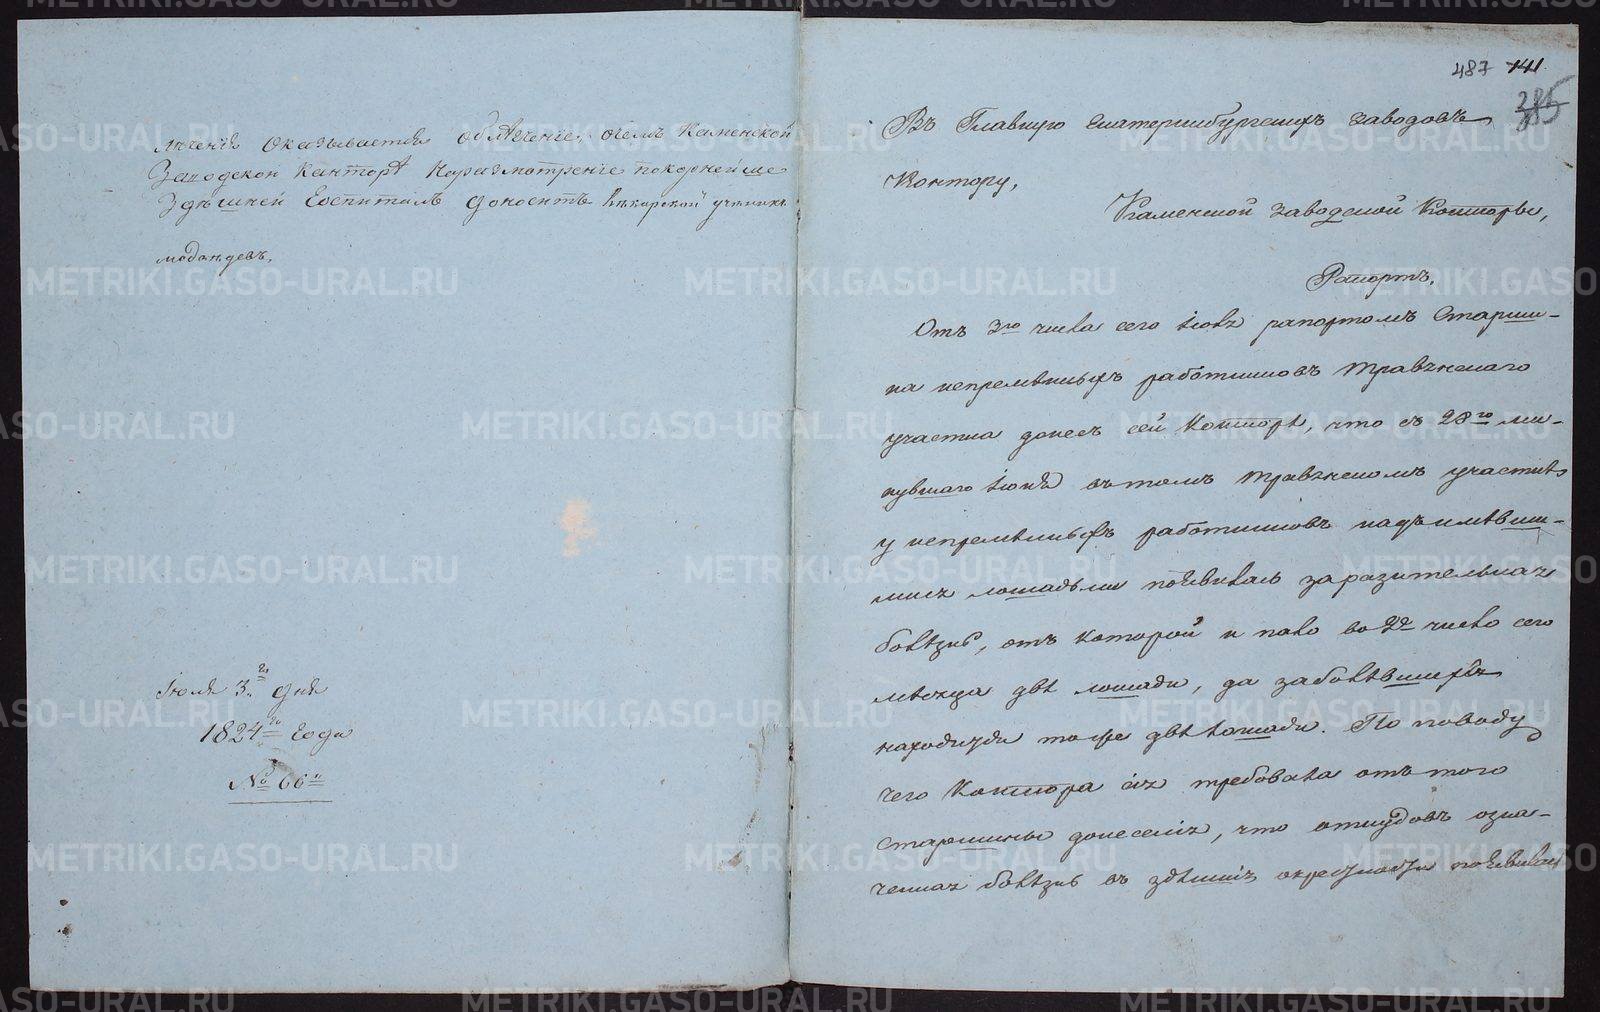 леченія оказывается облѣгченіе, очемъ Каменской
Заводской Канторѣ На разсмотреніе покорнейше
Здѣшней Госпиталь доноситъ Лѣкарской ученикъ
Іюля 3го дня
1824го Года
№ 66й
487 141
385
Въ Главную Екатеринбургскихъ заводовъ
Контору,
Каменской заводской Конторы,
Рапортъ.
Отъ 3го числа сего іюля рапортомъ Старши-
на непремѣнныхъ работниковъ Травянскаго
участка донесъ сей Конторѣ, что съ 28го ми-
нувшаго іюня въ томъ Травянскомъ участкѣ
у непремѣнныхъ работниковъ надъ имѣвши-
мися лошадьми появилась заразительная
болѣзнь, отъ которой и пало во 2е число сего
мѣсяца двѣ лошади, да заболѣвшихъ
находится тоже двѣ лошади. По поводу
чего Контора сія требовала отъ того
старшины донесенія, что откудовъ озна-
ченная болѣзнь въ здѣшнихъ окресностяхъ появилась
METRIKI.GASO-URAL.RU